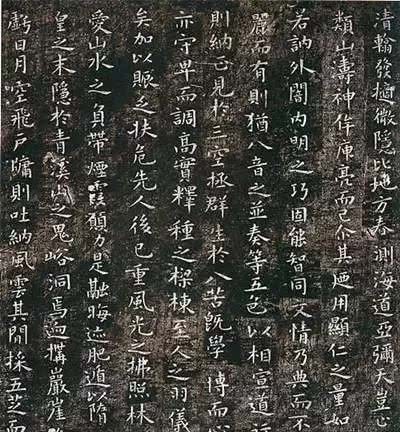 清翰發擿微隱比地方春測海道亞彌天豈
類山濤神侔庾亮而已介其廼用顯仁之量如
若訥外闇内明之巧固能智同文情乃典而不
麗而有則猶八音之並奏等五色以相宣道行
則納正見於三空拯群生於八苦既學博而心
亦守卑而調高實釋種之樑棟至人之羽儀
矣加以賑乏扶危先人後已重風光之拂照林
愛山水之負帶煙霞願力是融晦迹肥遁以隋
皇之末隱於青溪山之鬼峪洞焉迺構巖崖
虧日月空飛戶牖則吐納風雲其閒採五芝而